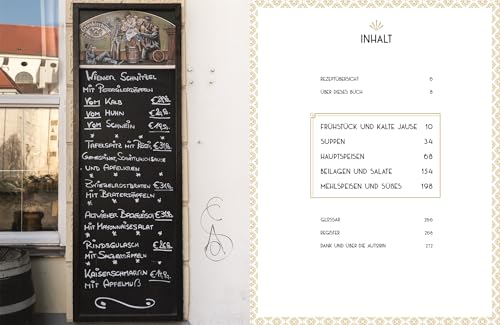 WIENER SCHNITZEL
MIT PETERSILERDÄPFELN
VOM KALB
VOM HUHN
VOM SCHWEIN
TAFELSPITZ MIT RÖSTI,
UND APFELKREN
ZWIEBELROSTBRATEN
MIT BRATERDÄPFELN
MIT MAYONNAISESALAT
RINDSGULASCH
KAISERSCHMARRN
MIT APFELMUß
INHALT
REZEPTÜBERSICHT 6
ÜBER DIESES BUCH 8
FRÜHSTÜCK UND KALTE JAUSE 10
SUPPEN 34
HAUPTSPEISEN 68
BEILAGEN UND SALATE 154
MEHLSPEISEN UND SÜßES 198
GLOSSAR 266
REGISTER 268
DANK UND ÜBER DIE AUTORIN 272